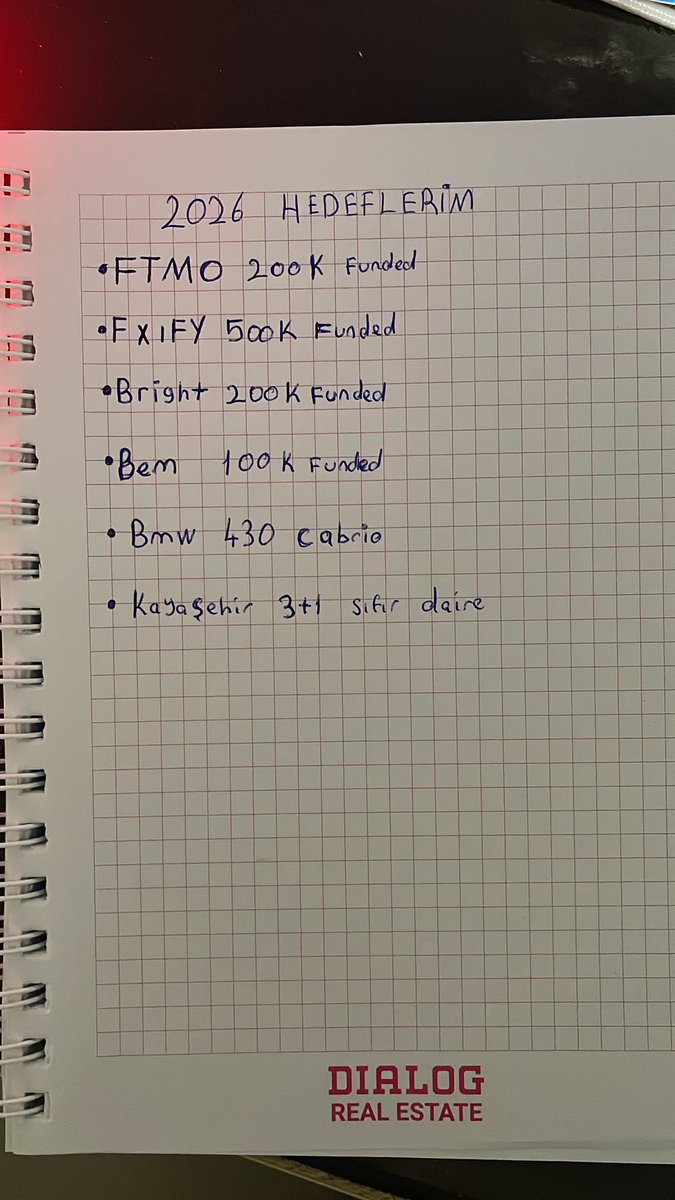 2026 HEDEFLERİM
•FTMO 200K Funded
•FXIFY 500K Funded
•Bright 200K Funded
•Bem 100K Funded
• Bmw 430 cabrio
• Kayaşehir 3+1 sıfır daire
DIALOG
REAL ESTATE